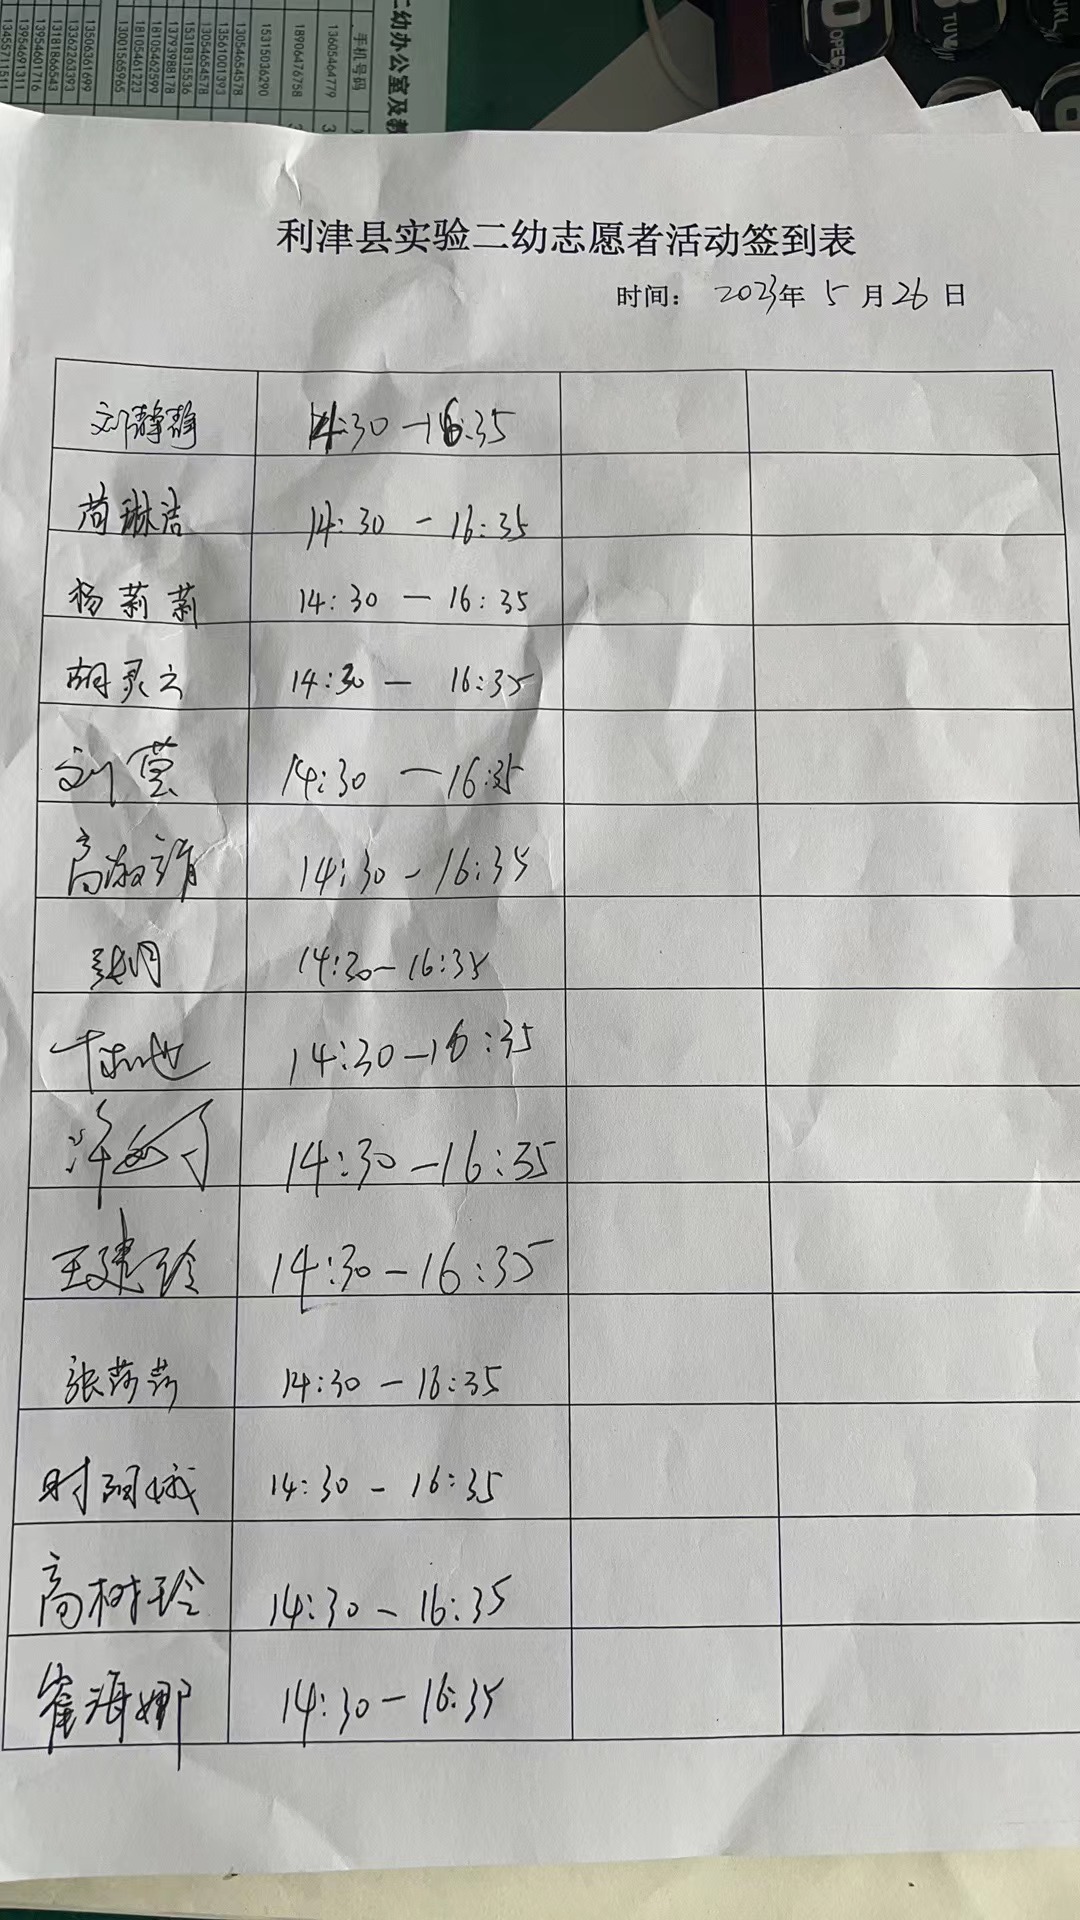 二幼办公室及教
手机号码
13605464779
18906476758
15315036290
13054654578
13561001393
13054654578
15318315536
13793988178
18105462599
18105461223
13001565965
13506361699
13362263393
13181866543
13954601716
13954691311
13455711511
OPER
TUV
JKL
利津县实验二幼志愿者活动签到表
时间： 2023年 5 月 26 日
刘静静 14:30 - 16:35
苘琳洁 14:30 - 16:35
杨莉莉 14:30 - 16:35
胡灵云 14:30 - 16:35
刘莫 14:30 - 16:35
高淑靖 14:30 - 16:35
张月 14:30 - 16:35
14:30 - 16:35
14:30 - 16:35
王建玲 14:30 - 16:35
张莎莎 14:30 - 16:35
时丽娥 14:30 - 16:35
高树玲 14:30 - 16:35
崔海娜 14:30 - 16:35